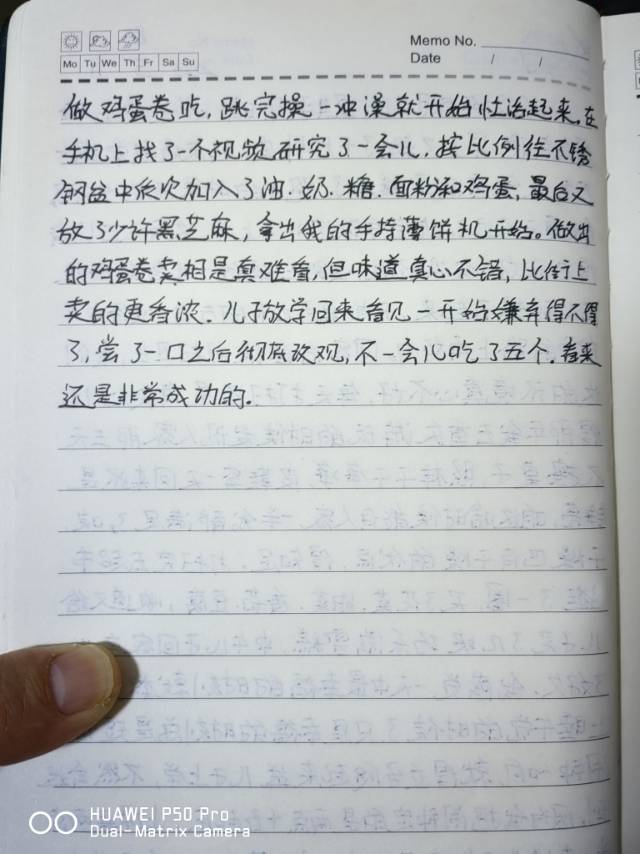 Memo No.
Mo Tu We Th Fr Sa Su
Date / /
做鸡蛋卷吃,跳完操一冲澡就开始忙活起来,在
手机上找了一个视频研究了一会儿,按比例往不锈
钢盆中依次加入了油.奶.糖.面粉和鸡蛋,最后又
放了少许黑芝麻,拿出我的手持薄饼机开始。做出
的鸡蛋卷卖相是真难看,但味道真心不错,比街上
卖的更香浓.儿子放学回来看见一开始嫌弃得不得
了,尝了一口之后彻底改观,不一会儿吃了五个.看来
还是非常成功的.
HUAWEI P50 Pro
Dual-Matrix Camera